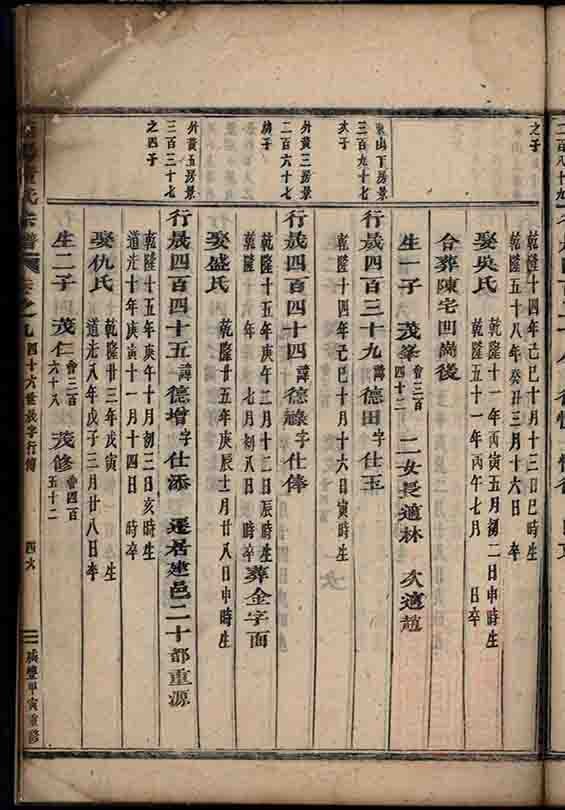 之子
乾隆十四年己巳十月十三日巳時生
乾隆五十八年癸丑三月十六日 卒
娶吳氏
乾隆十一年丙寅五月初二日申時生
乾隆五十一年丙午七月 日卒
合葬陳宅凹崗後
生一子 茂峯 會三百四十二 二女長適林 次適趙
東山下房景
三百九十七
次子
行晟四百三十九諱德田字仕玉
乾隆十四年己巳十月十六日寅時生
外黃三房景
二百六十七
行晟四百四十四諱德祿字仕俸
乾隆十五年庚午二月十二日辰時生
七月初八日 時卒
葬金字面
娶盛氏
乾隆廿五年庚辰十二月廿八日申時生
外黃五房景
三百三十七
之四子
行晟四百四十五諱德增字仕添 遷居建邑二十都重源
乾隆十五年庚午十月初三日亥時生
道光十年庚寅十一月十四日 時卒
娶仇氏
乾隆廿三年戊寅 生
道光八年戊子三月廿八日卒
生二子 茂仁 會三百六十八 茂修 會四百五十二
氏宗譜 卷之九 四十六世晟字行傳 四六 咸豐甲寅重修